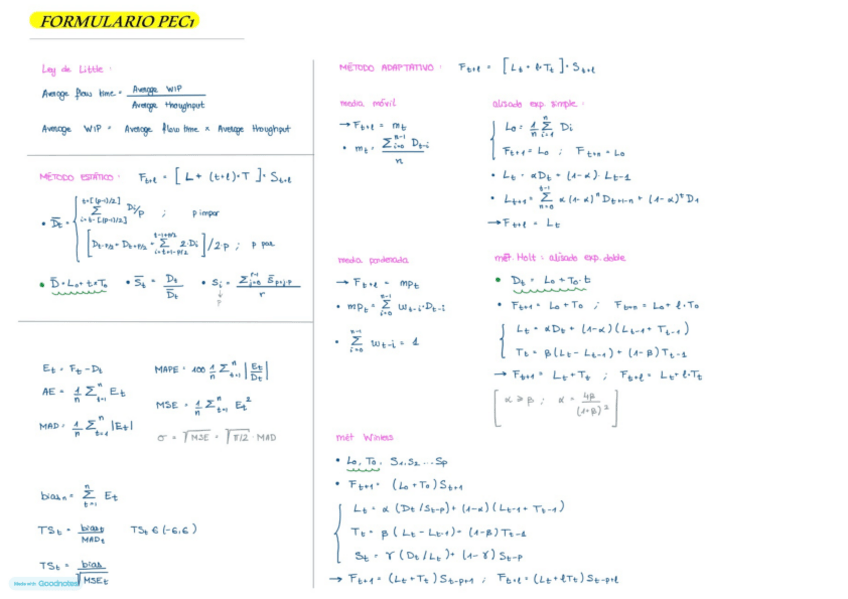 FORMULARIO PEC1
Ley de Little:
Average flow time = Average WIP / Average thoughput
Average WIP = Average flow time × Average thoughput
MÉTODO ESTÁTICO: F_{t+l} = [L + (t+l)·T]·S_{t+l}
• D̄_t = { Σ_{i=t-[(p-1)/2]}^{t+[(p-1)/2]} D_i/p ; p impar
[D_{t-p/2} + D_{t+p/2} + Σ_{i=t+1-p/2}^{t-1+p/2} 2·D_i] / 2·p ; p par
• D̄ = L_0 + t×T_0 • S̄_t = D_t / D̄_t • S_i = Σ_{j=0}^{r-1} S̄_{p·j+p} / r
p
E_t = F_t - D_t
MAPE = 100 1/n Σ_{t=1}^{n} |E_t/D_t|
AE = 1/n Σ_{t=1}^{n} E_t
MSE = 1/n Σ_{t=1}^{n} E_t²
MAD = 1/n Σ_{t=1}^{n} |E_t|
σ = √MSE = √π/2 · MAD
bias_n = Σ_{t=1}^{n} E_t
TS_t = bias_t / MAD_t TS_t ∈ (-6,6)
TS_t = bias / √MSE_t
Made with Goodnotes
MÉTODO ADAPTATIVO: F_{t+l} = [L_t + l·T_t]·S_{t+l}
media móvil
→ F_{t+l} = m_t
• m_t = Σ_{i=0}^{n-1} D_{t-i} / n
alisado exp. simple:
{ L_0 = 1/n Σ_{i=1}^{n} D_i
F_{t+1} = L_0 ; F_{t+n} = L_0
• L_t = αD_t + (1-α)·L_{t-1}
• L_{t+1} = Σ_{n=0}^{t-1} α(1-α)^n D_{t+1-n} + (1-α)^t D_1
→ F_{t+l} = L_t
media ponderada
→ F_{t+l} = mp_t
• mp_t = Σ_{i=0}^{n-1} w_{t-i}·D_{t-i}
• Σ_{i=0}^{n-1} w_{t-i} = 1
mét. Holt: alisado exp. doble
• D_t = L_0 + T_0·t
• F_{t+1} = L_0 + T_0 ; F_{t+n} = L_0 + l·T_0
{ L_t = αD_t + (1-α)(L_{t-1} + T_{t-1})
T_t = β(L_t - L_{t-1}) + (1-β)T_{t-1}
→ F_{t+1} = L_t + T_t ; F_{t+l} = L_t + l·T_t
[α ≥ β ; α = 4β / (1+β)²]
mét Winters
• L_0, T_0, S_1, S_2 ... S_p
• F_{t+1} = (L_0 + T_0) S_{t+1}
{ L_t = α(D_t/S_{t-p}) + (1-α)(L_{t-1} + T_{t-1})
T_t = β(L_t - L_{t-1}) - (1-β)T_{t-1}
S_t = γ(D_t/L_t) + (1-γ)S_{t-p}
→ F_{t+1} = (L_t + T_t) S_{t-p+1} ; F_{t+l} = (L_t + lT_t) S_{t-p+l}